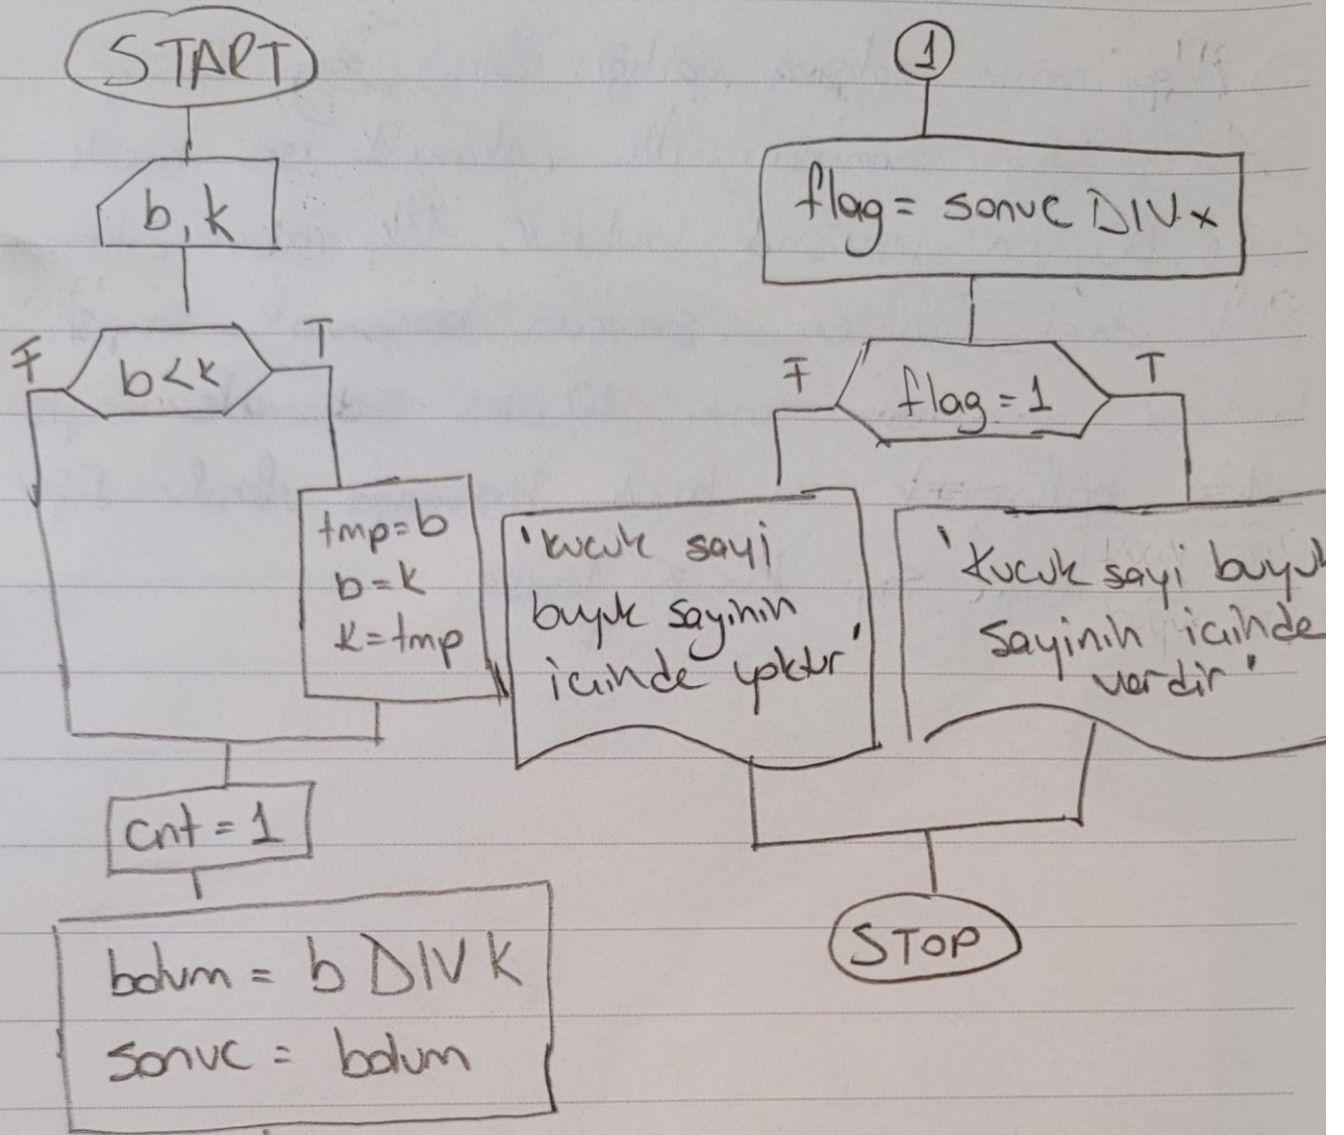 START
b, k
b<k
F
T
tmp=b
b=k
k=tmp
cnt = 1
bolum = b DIV k
sonuc = bolum
1
flag = sonuc DIV x
flag = 1
F
T
'kucuk sayi
buyuk sayinin
icinde yoktur'
'Kucuk sayi buyuk
sayinin icinde
vardir'
STOP